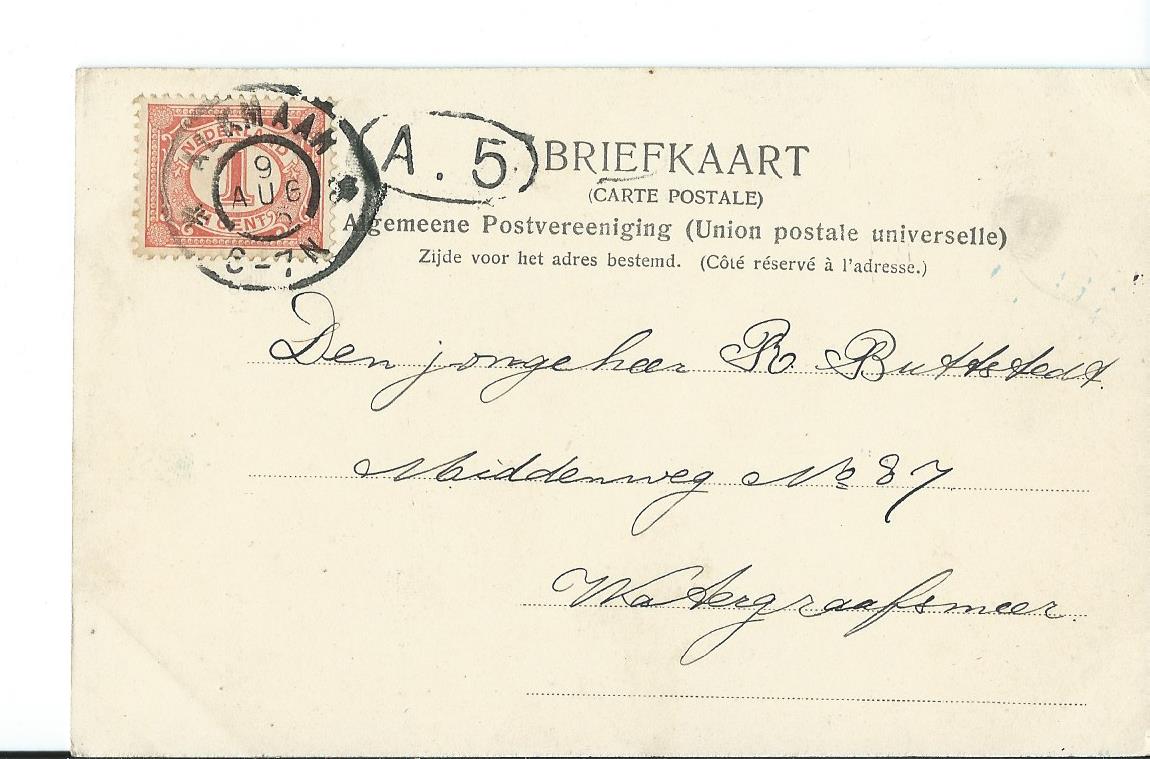 ALKMAAR
NEDERLAND
1
CENT
9
AUG
6-7 N
A. 5
BRIEFKAART
(CARTE POSTALE)
Algemeene Postvereeniging (Union postale universelle)
Zijde voor het adres bestemd. (Côté réservé à l'adresse.)
Den jongeheer R. Buttstedt.
Middenweg No 87
Watergraafsmeer.